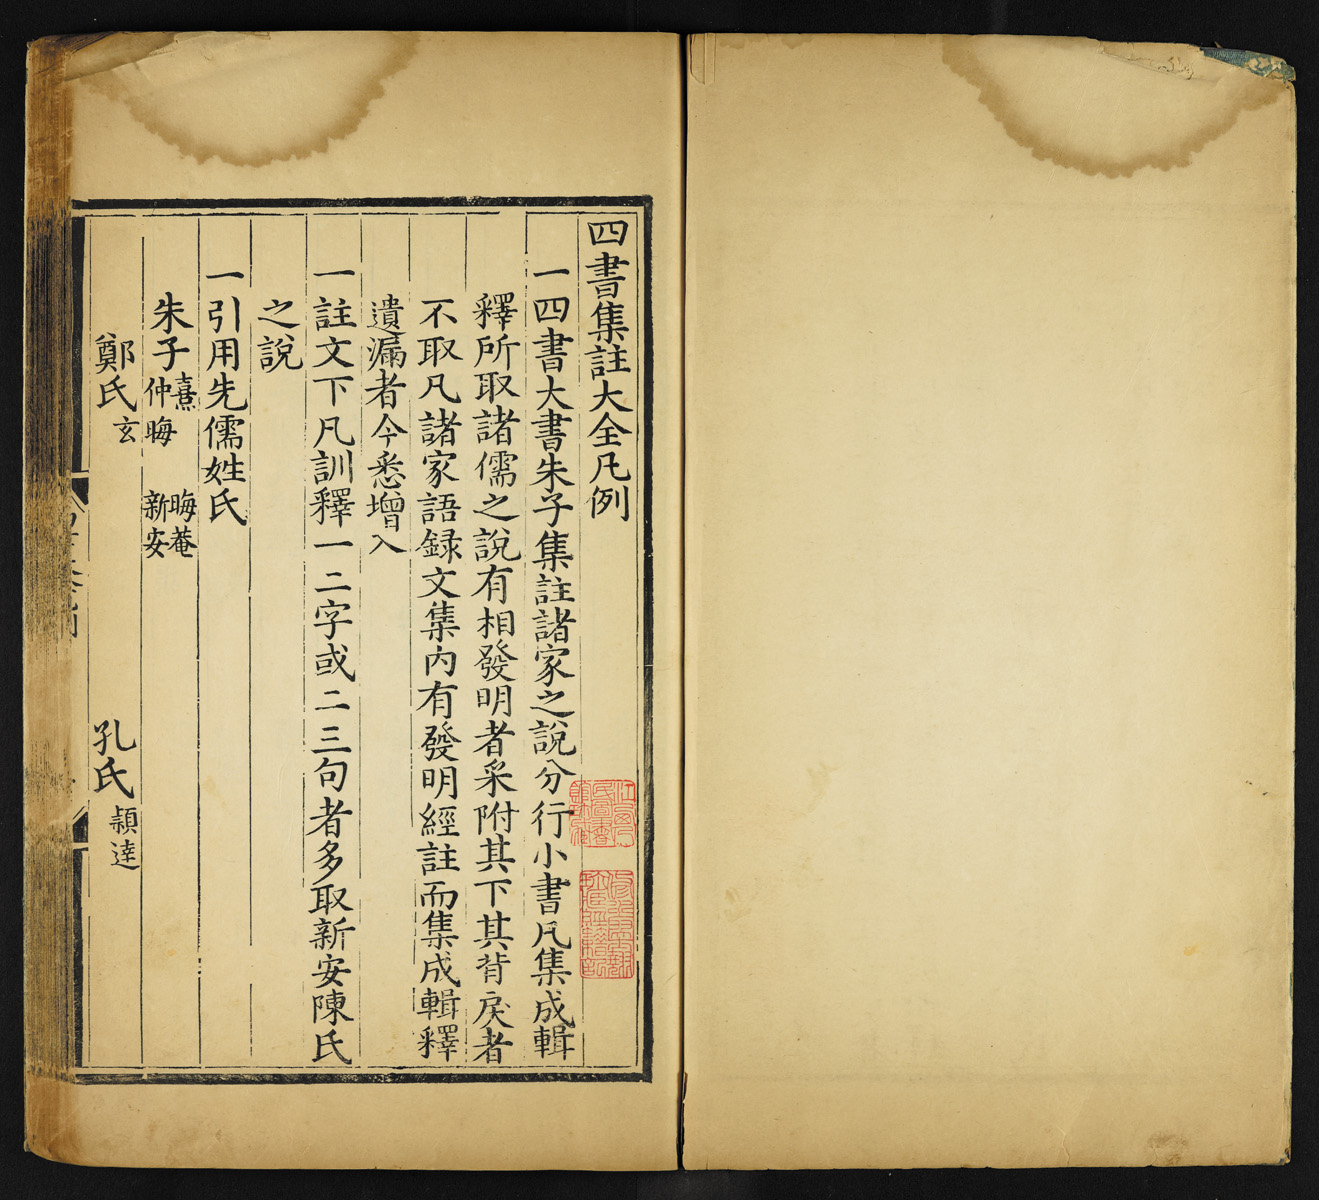 四書集註大全凡例
一四書大書朱子集註諸家之說分行小書凡集成輯
釋所取諸儒之說有相發明者采附其下其背戾者
不取凡諸家語録文集内有發明經註而集成輯釋
遺漏者今悉增入
一註文下凡訓釋一二字或二三句者多取新安陳氏
之說
一引用先儒姓氏
朱子熹仲晦 晦菴新安
鄭氏玄 孔氏頴達